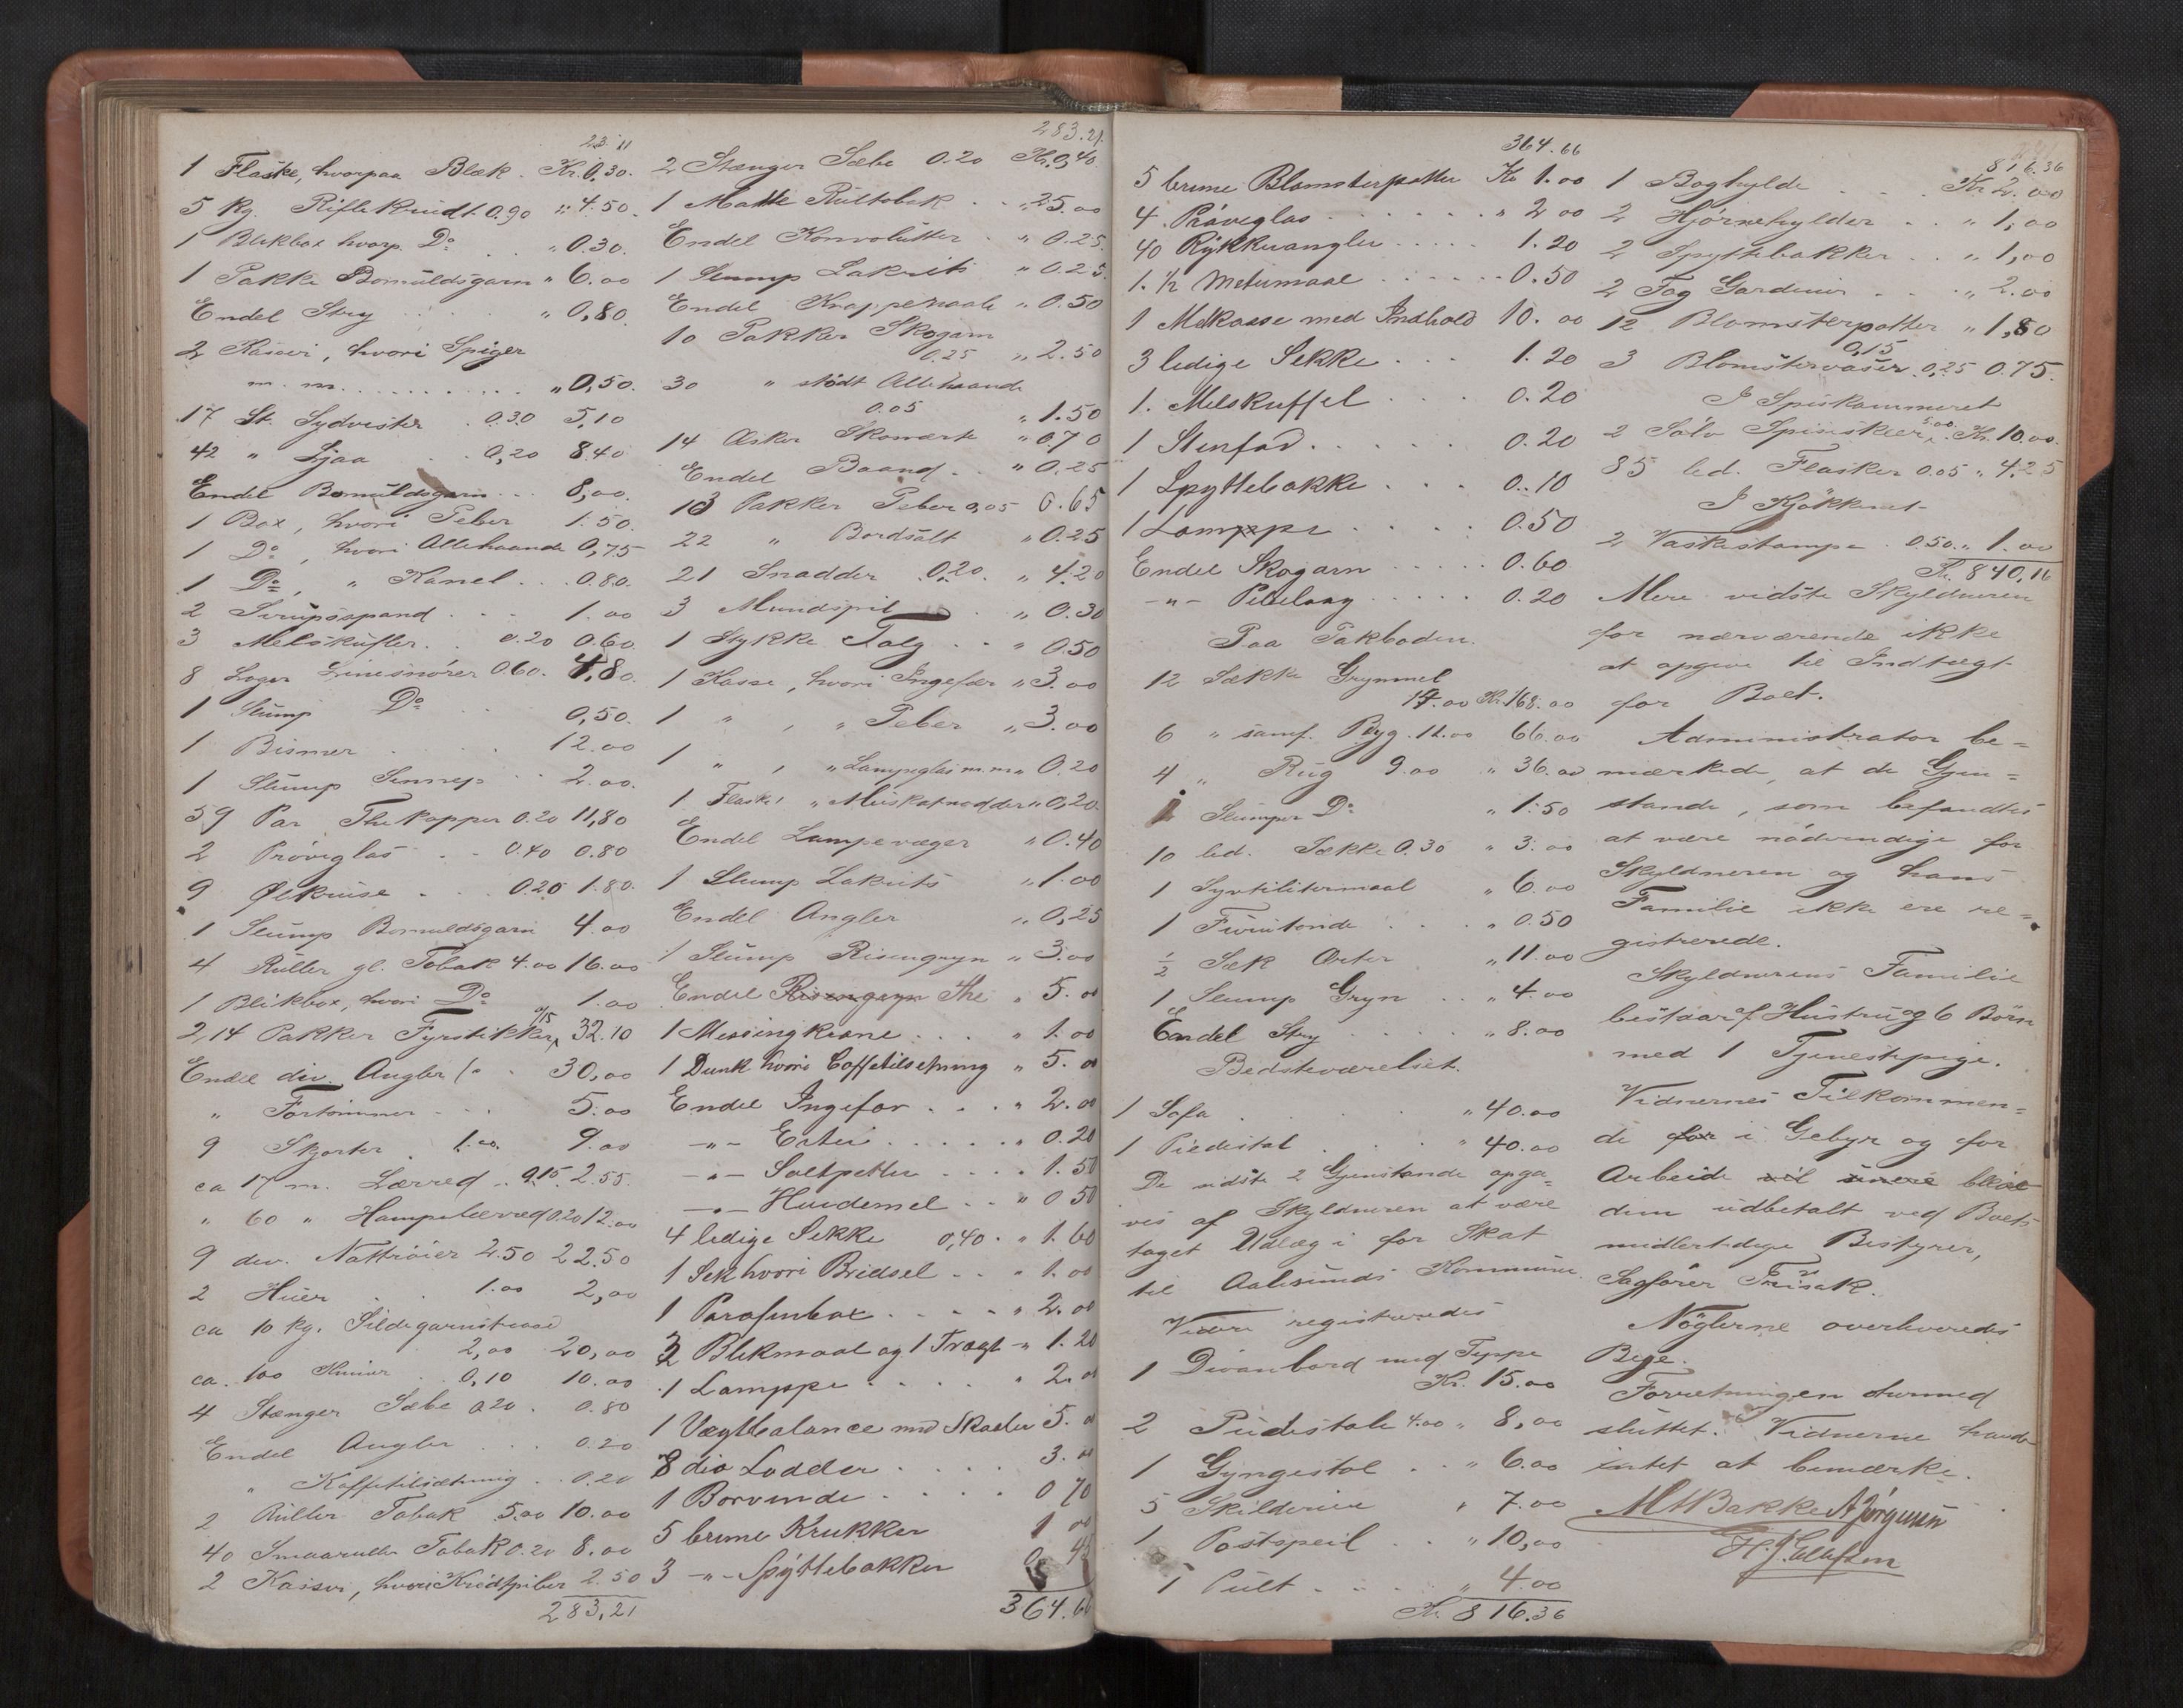 22.11
1 Flaske, hvorpaa Blæk. Kr. 0.30.
5 kg. Riflekrudt 0.90 " 4.50.
1 Blikbox hvorp. Do " 0.30.
1 Pakke Bomuldsgarn " 6.00
Endel Stry " 0,80.
2 Kasser, hvori Spiger
m. m. " 0,50.
17 St. Sydvester 0.30 5,10
42 " Ljaa 0,20 8.40
Endel Bomuldsgarn 8,00.
1 Box, hvori Peber 1.50.
1 Do, hvori Allehaande 0,75
1 Do, " Kanel 0.80.
2 Sirupsspand 1.00
3 Melskufler 0.20 0.60.
8 Loger Linesnører 0.60. 4,80.
1 Slump Do 0,50.
1 Bismer 12.00
1 Slump Sennep 2.00.
59 Par Thekopper 0.20 11,80
2 Prøveglas 0.40 0.80
9 Ølkruse 0.20 1.80.
1 Slump Bomuldsgarn 4.00
4 Ruller gl. Tobak 4.00 16.00
1 Blikbox, hvori Do 1.00
2,14 Pakker Fyrstikker 0/15 32.10
Endel div. Angler 30,00
" Fortommer 5.00
9 Skjorter 1.00 9.00
ca 17 m. Lærred 0.15 2.55.
" 60 " Hampelærred 0.20 12.00
9 div. Nattrøier 2.50 22.50
2 Huer 1.00 2,00
ca 10 kg. Sildegarnstraad
2,00 20,00
ca. 100 Knive 0,10 10.00
4 Stænger Sæbe 0.20. 0.80
Endel Angler 0.20
" Kaffetilsætning 0.20
2 Ruller Tobak 5.00 10.00
40 Smaaruller Tobak 0.20 8.00
2 Kasser, hvori Kridtpiber 2.50
283,21
283.21.
2 Stænger Sæbe 0.20 Kr. 0,40.
1 Matte Rultobak " 25.00
Endel Konvolutter " 0.25.
1 Slump Lakrits " 0.25.
Endel Knappenaale " 0.50
10 Pakker Skogarn
0.25 " 2.50
30 " stødt Allehaande
0.05 " 1.50
14 Æsker Skosværte " 0.70
Endel Baand " 0.25
13 Pakker Peber 0,05 0.65
22 " Bordsalt " 0.25
21 Snadder 0.20. " 4.20
3 Mundspil " 0.30
1 Stykke Talg " 0.50
1 Kasse, hvori Ingefær " 3.00
1 " , " Peber " 3.00
1 " , " Lampeglas m.m. " 0.20
1 Flaske, " Muskatnødder " 0,20.
Endel Lampevæger " 0.40
1 Slump Lakrits " 1.00
Endel Angler " 0,25
1 Slump Risengryn " 3.00
Endel Risengryn The " 5.00
1 Messingkrane " 1.00
1 Dunk hvori Caffetilsetning " 5.00
Endel Ingefær " 2.00
-"- Erter " 0.20
-"- Saltpetter 1.50
-"- Hvedemel " 0 50
4 ledige Sekke 0,40. " 1.60
1 Sek hvori Bridsel " 1.00
1 Parafinbox " 2.00
3 Blikmaal og 1 Tragt " 1.20
1 Lamppe " 2.00
1 Vægtbalance med Skaaler 5.00
8 div Lodder 3.00
1 Borvinde 0 70
5 brune Krukker 1 00
3 -"- Spyttebakker 0 45
364.66
364.66
5 brune Blomsterpotter Kr 1.00
4. Prøveglas " 2 00
40 Rykkerangler 1.20
1. 1/2 Metermaal 0.50
1 Melkasse med Indhold 10.00
3 ledige Sekke 1.20
1. Melskuffel 0.20
1 Stenfad 0.20
1 Spyttebakke 0.10
1 Lamppe 0.50
Endel Skogarn 0.60
-"- Pibelaag 0.20
Paa Pakboden.
12 Sække Grynmel
14.00 Kr. 168.00
6 " samf. Byg. 11.00 66.00
4 " Rug 9.00 " 36.00
1 Slumper Do " 1.50
10 led. Sække 0.30 " 3.00
1 Syvtilitermaal " 6.00
1 Furutønde " 0.50
1/2 Sæk Erter " 11.00
1 Slump Gryn " 4.00
Endel Stry " 8.00
Bedsteværelset.
1 Sofa " 40.00
1 Piedistal " 40.00
De sidste 2 Gjenstande opga-
ves af Skyldneren at være
taget Udlæg i for Skat
til Aalesunds Kommune.
Videre registreredes
1 Divanbord med Teppe
Kr. 15.00
2 Piedestale 4.00 " 8,00
1 Gyngestol " 6.00
5 Skilderier " 7.00
1 Postspeil " 10,00
1 Pult " 4.00
Kr. 816.36
816.36
1 Boghylde Kr. 2.00
2 Hjørnehylder " 1,00
2 Spyttebakker " 1,00
2 Fag Gardiner " 2.00
12 Blomsterpotter " 1,80
0,15
3 Blomstervaser 0,25 0.75.
I Spiskammeret
2 Sølv Spiseskeer 5.00 Kr. 10.00.
85 led. Flasker 0.05 " 4.25
I Kjøkkenet
2 Vaskestampe 0.50 " 1.00
Kr. 840,16
Mere vidste Skyldneren
for nærværende ikke
at opgive til Indtægt
for Boet.
Administrator be-
mærkede, at de Gjen-
stande, som befandtes
at være nødvendige for
Skyldneren og hans
Familie ikke ere re-
gistrerede.
Skyldnerens Familie
bestaar af Hustru og 6 Børn
med 1 Tjenestepige.
Vidnernes Tilkommen-
de for i Gebyr og for
Arbeide vil blive
dem udbetalt ved Boets
midlertidige Bestyrer,
Sagfører Frisak.
Nøglerne overleveredes
Bege.
Forretningen dermed
sluttet. Vidnerne havde
intet at bemærke.
M H Bakke A Jørgensen